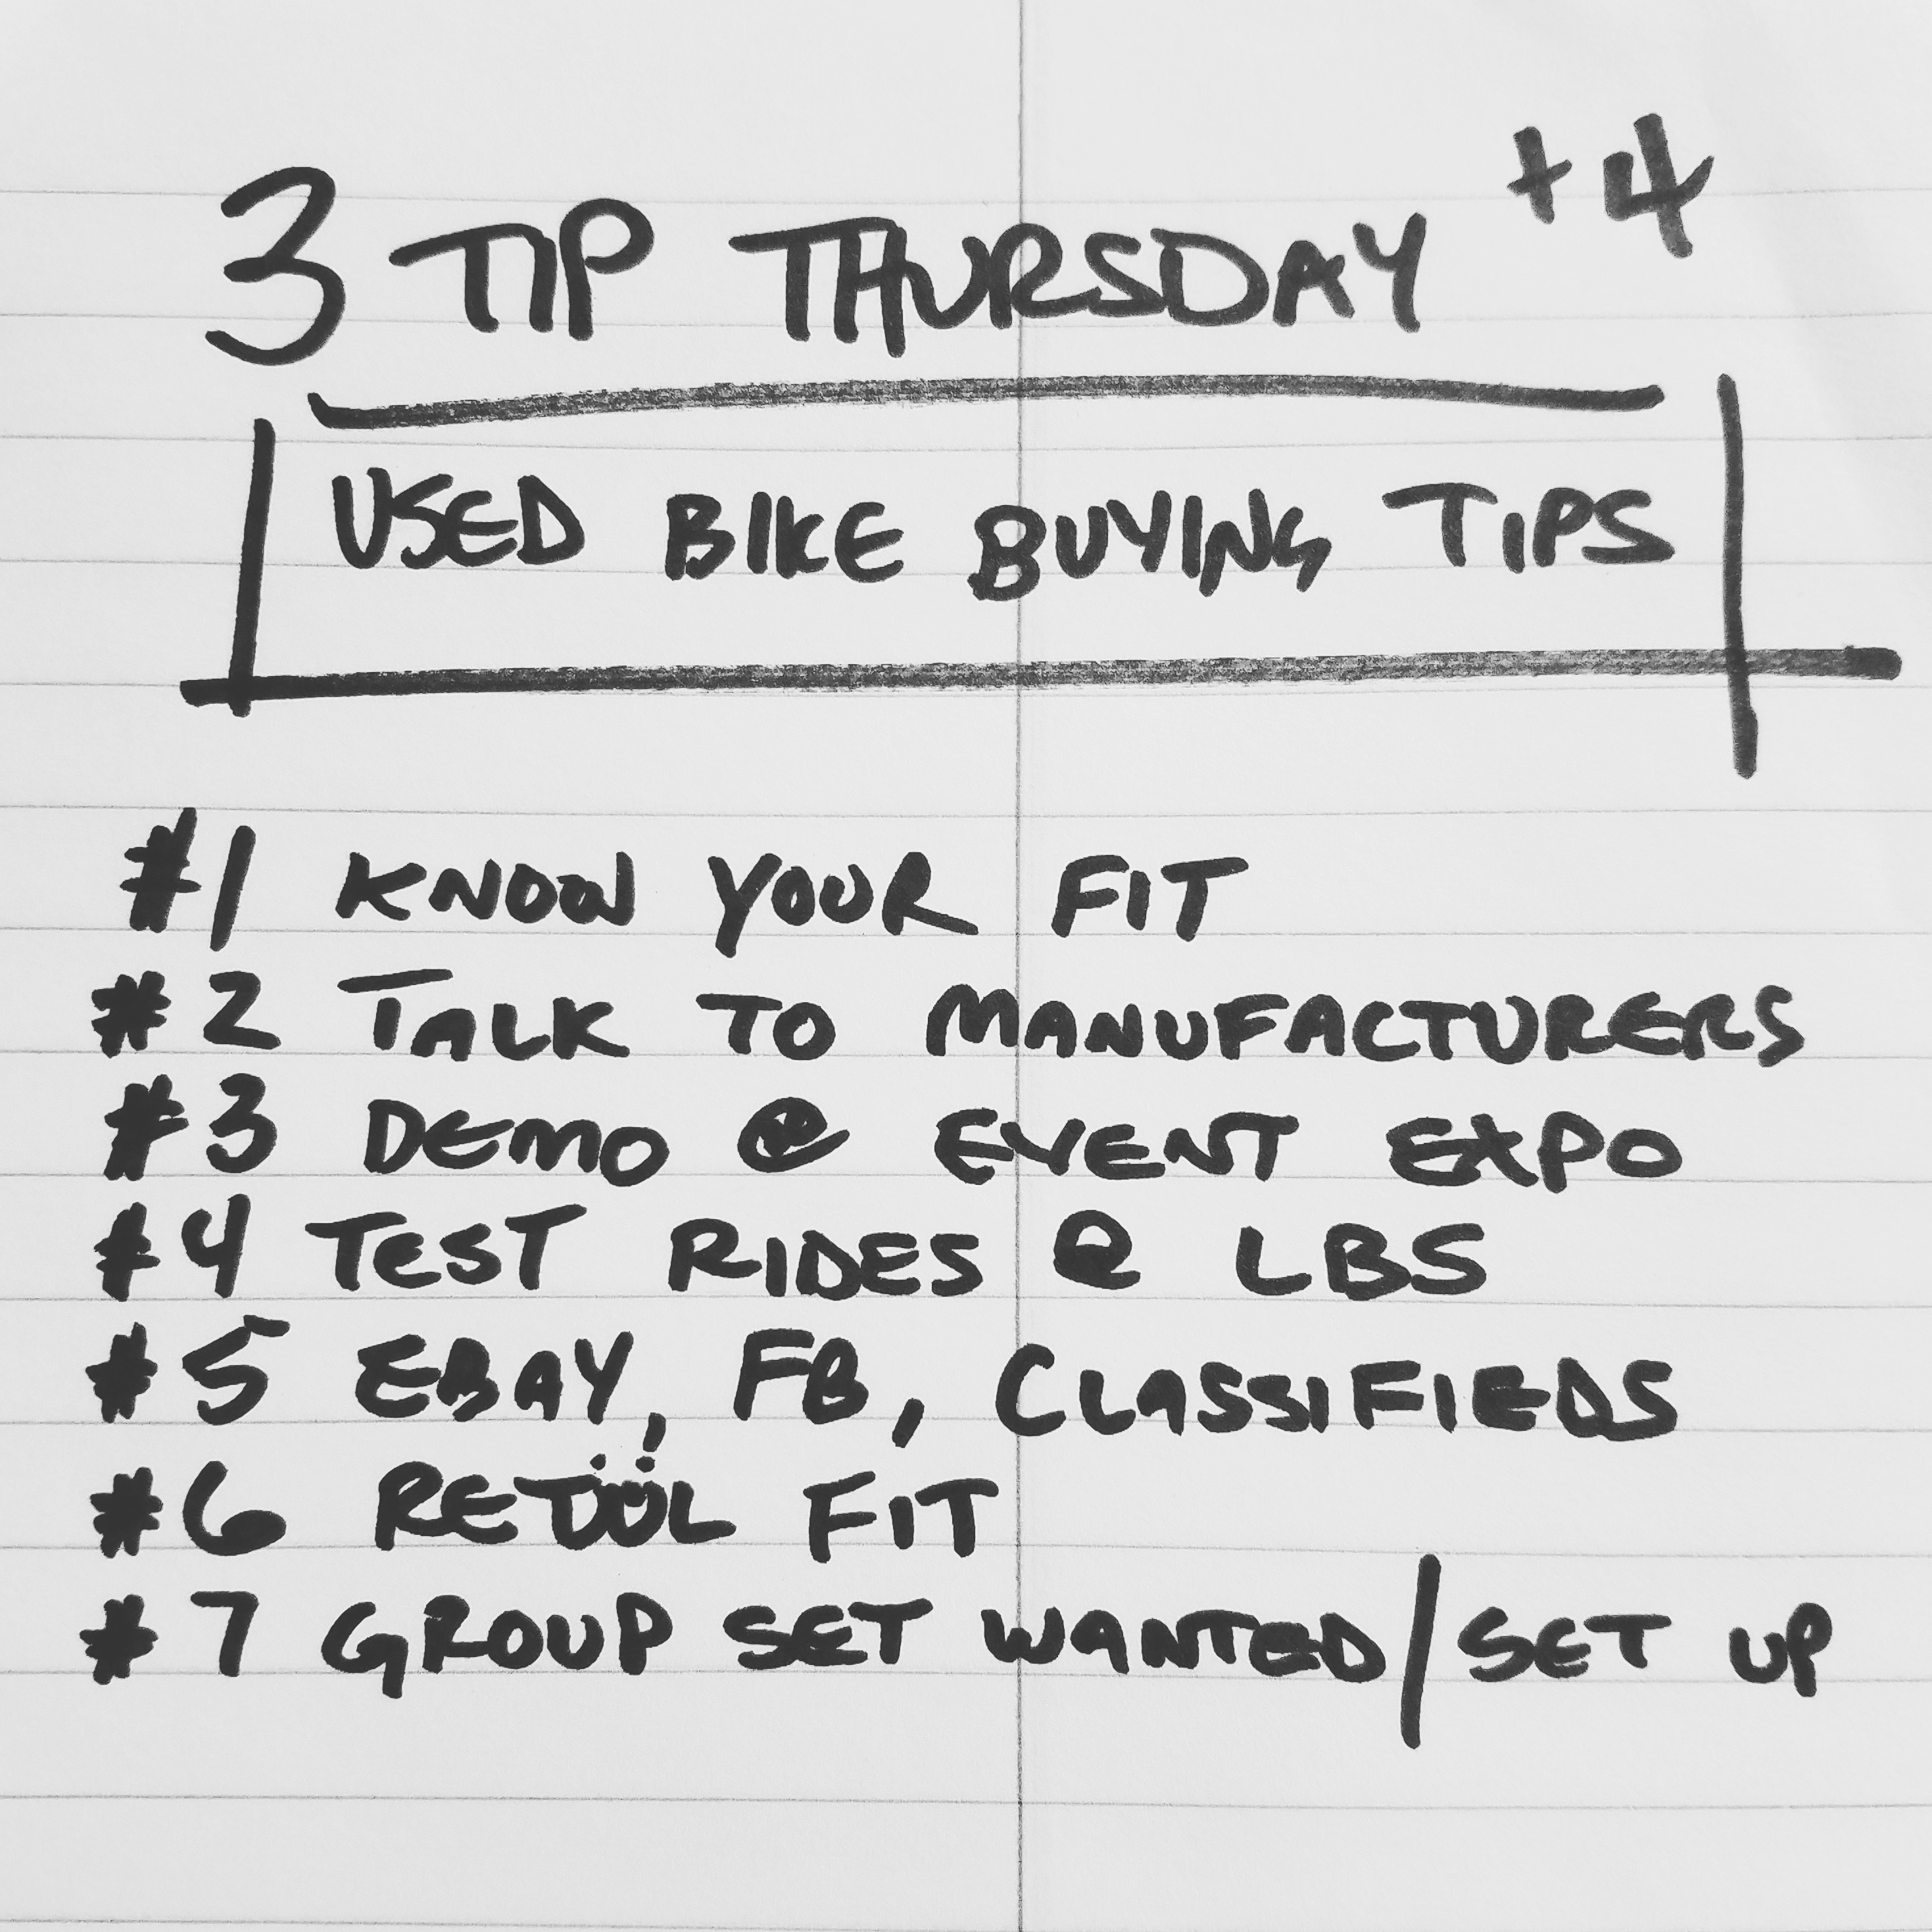 3 TIP THURSDAY +4
USED BIKE BUYING TIPS
#1 KNOW YOUR FIT
#2 TALK TO MANUFACTURERS
#3 DEMO @ EVENT EXPO
#4 TEST RIDES @ LBS
#5 EBAY, FB, CLASSIFIEDS
#6 RETÜL FIT
#7 GROUP SET WANTED/SET UP